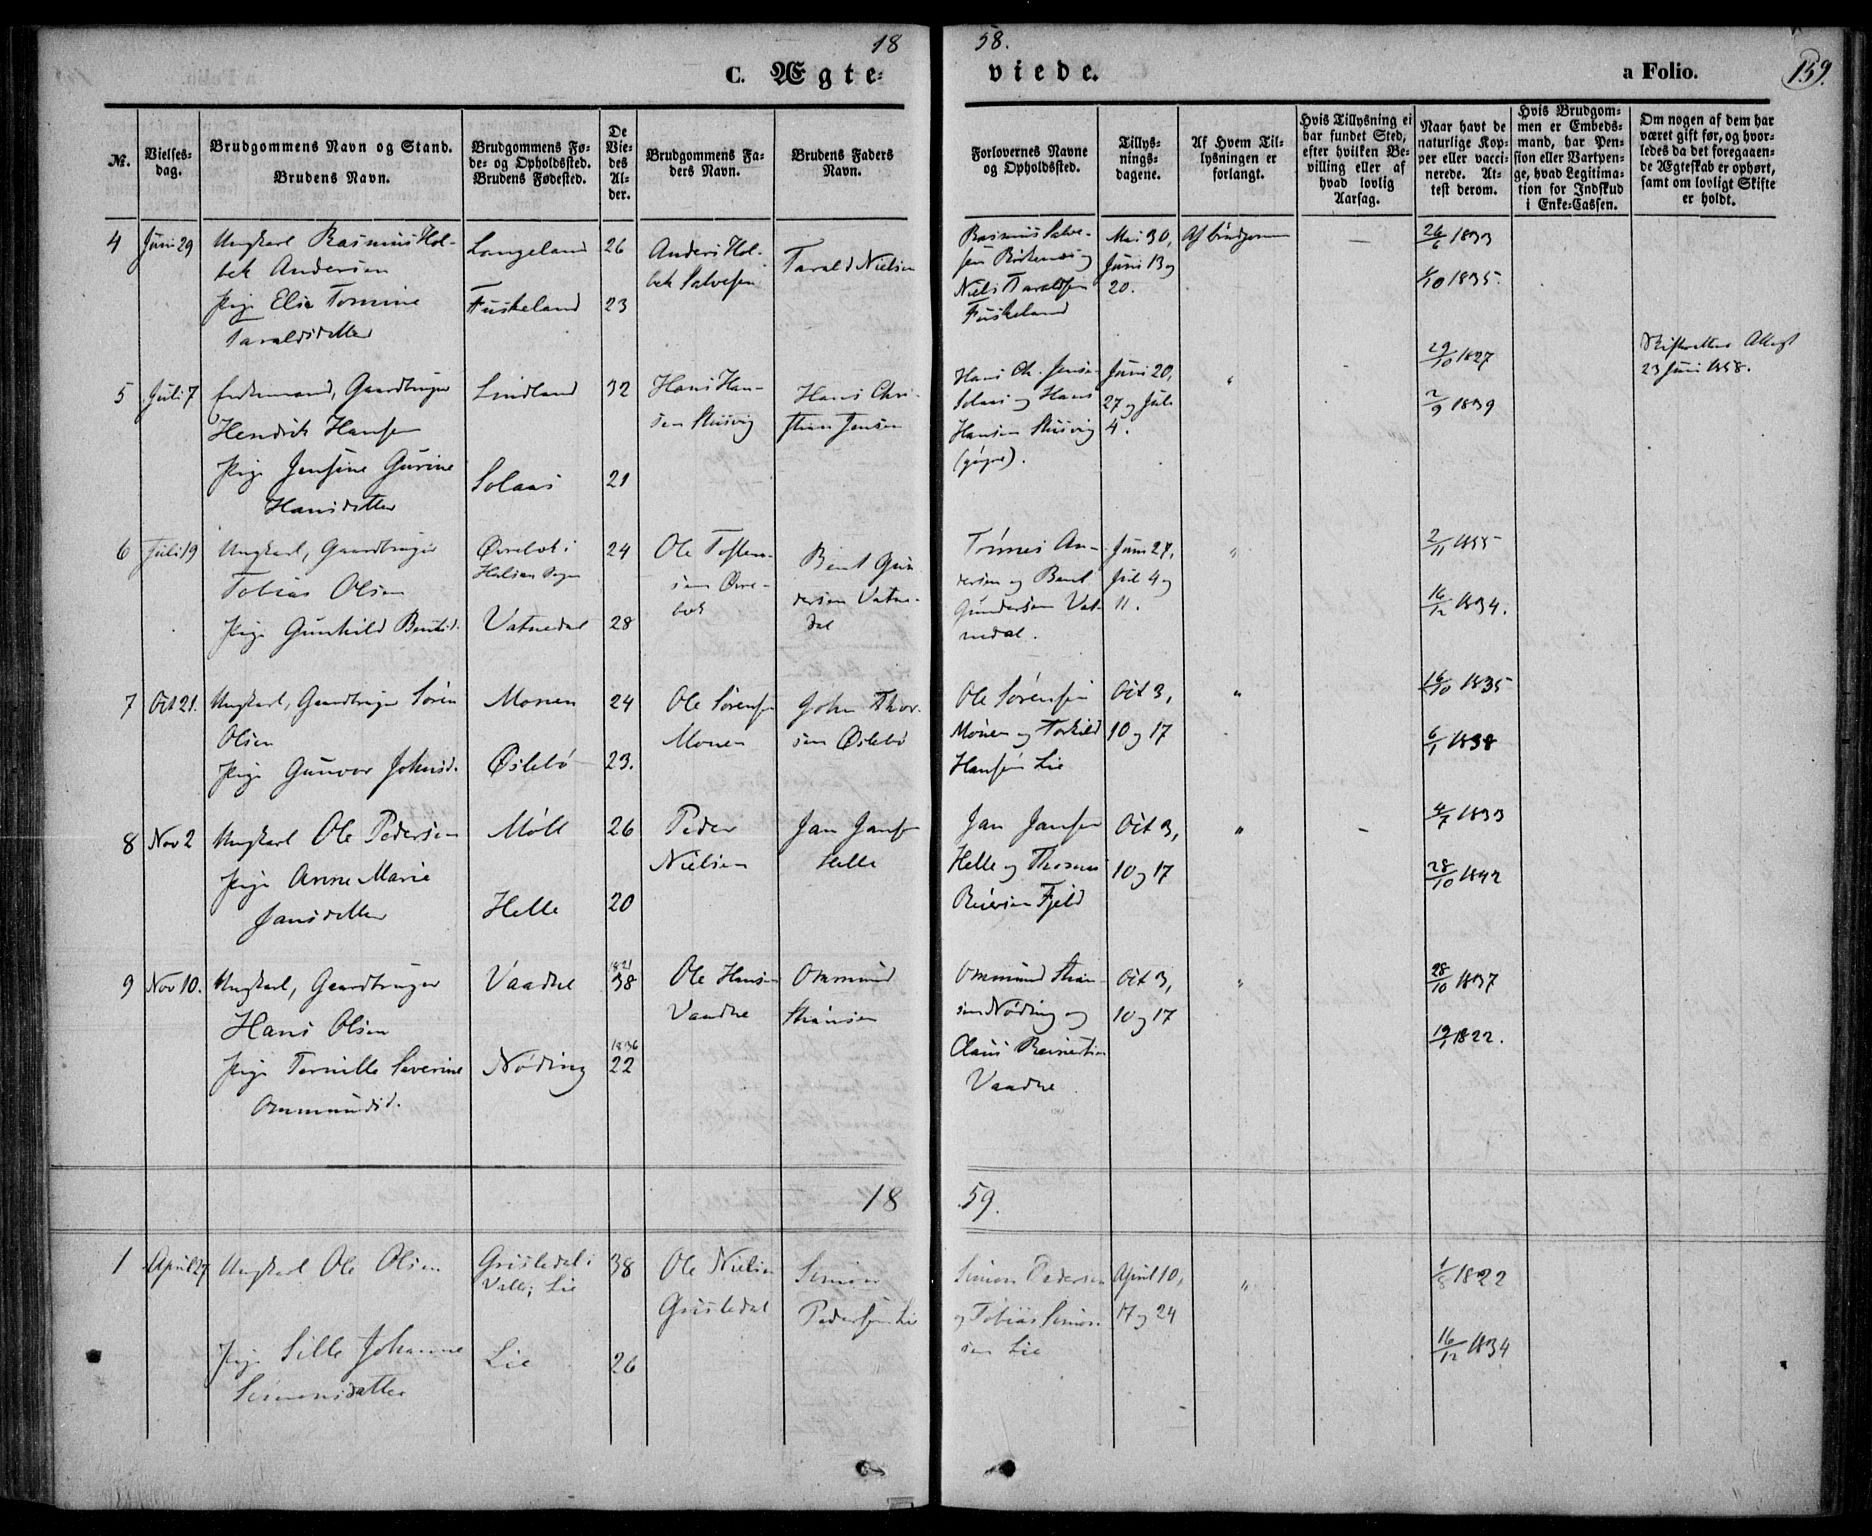 18 58.
C. Ægte= viede. a Folio. 159.
№.
Vielses-
dag.
Brudgommens Navn og Stand.
Brudens Navn.
Brudgommens Fø-
de- og Opholdssted.
Brudens Fødested.
De
Vie-
des
Al-
der.
Brudgommens Fa-
ders Navn.
Brudens Faders
Navn.
Forlovernes Navne
og Opholdssted.
Tillys-
nings-
dagene.
Af Hvem Til-
lysningen er
forlangt.
Hvis Tillysning ei
har fundet Sted,
efter hvilken Be-
villing eller af
hvad lovlig
Aarsag.
Naar havt de
naturlige Kop-
per eller vacci-
nerede. At-
test derom.
Hvis Brudgom-
men er Embeds-
mand, har Pen-
sion eller Vartpen-
ge, hvad Legitima-
tion for Indskud
i Enke-Cassen.
Om nogen af dem har
været gift før, og hvor-
ledes da det foregaaen-
de Ægteskab er ophørt,
samt om lovligt Skifte
er holdt.
4 Juni 29 Ungkarl Rasmus Hol-
bek Andersen
Pige Elia Tomine
Taraldsdatter
Langeland 26
Fuskeland 23
Anders Hol-
bek Salvesen
Tarald Nielsen
Rasmus Salve-
sen og
Niels Taraldsen
Fuskeland
Mai 30,
Juni 13 og
20.
Af brudgommen
—
26/6 1833
1835.
5 Juli 7 Enkemand, Gaardbruger
Hendrik Hansen
Pige Jensine Gurine
Hansdatter
Lindland 32
Solaas 21
Hans Han-
sen Stusvig
Hans Chri-
stian Jensen
Hans Ch. Jensen
Solaas og Hans
Hansen Stusvig
Juni 20,
27 og Juli
4.
"
29/10 1827
2/9 1839
Skifterettens Attest
23 Juni 1858.
6 Juli 19 Ungkarl, Gaardbruger
Tobias Olsen
Pige Gunhild Bentsd.
Øvrebek i
Halsaa Sogn
24
Vatnedal 28
Ole Tostens-
sen Øvre-
bek
Bent Gun-
dersen Vatne-
dal
Tønnes An-
dersen og Bent
Gundersen Vat-
nedal.
Juni 27,
Juli 4 og
11.
"
2/11 1835
16/12 1834.
7 Oct 21. Ungkarl, Gaardbruger Søren
Olsen
Pige Gunvor Johnsd.
Monen 24
Øslebø 23.
Ole Sørensen
Monen
John Thor-
sen Øslebø
Ole Sørensen
Monen og Torkild
Hansen Lie
Oct 3,
10 og 17
"
16/10 1835
6/1 1838
8 Nov 2 Ungkarl Ole Pedersen
Pige Anne Marie
Jansdatter
Møll 26
Helle 20
Peder
Nielsen
Jan Jansen
Helle
Jan Jansen
Helle og Thomas
Reiersen Fjeld
Oct 3,
10 og 17
"
-
4/7 1833
28/10 1842
9 Nov 10. Ungkarl, Gaardbruger
Hans Olsen
Pige Pernille Severine
Ommundsd.
Vaadne 1821 38
Nøding 1836 22
Ole Hansen
Vaadne
Ommund
Stiansen
Ommund Stian-
sen Nøding og
Claus Reinertsen
Vaadne
Oct 3,
10 og 17
"
28/10 1837
1822.
18 59.
1 April 27 Ungkarl Ole Olsen
Pige Sille Johanne
Simonsdatter
Grisledal i
Valle, Lie
38
Lie 26
Ole Nielsen
Grisledal
Simon
Pedersen Lie
Simon Pedersen
og Tobias Simon-
sen Lie
April 10,
17 og 24
"
1/8 1822
16/12 1834